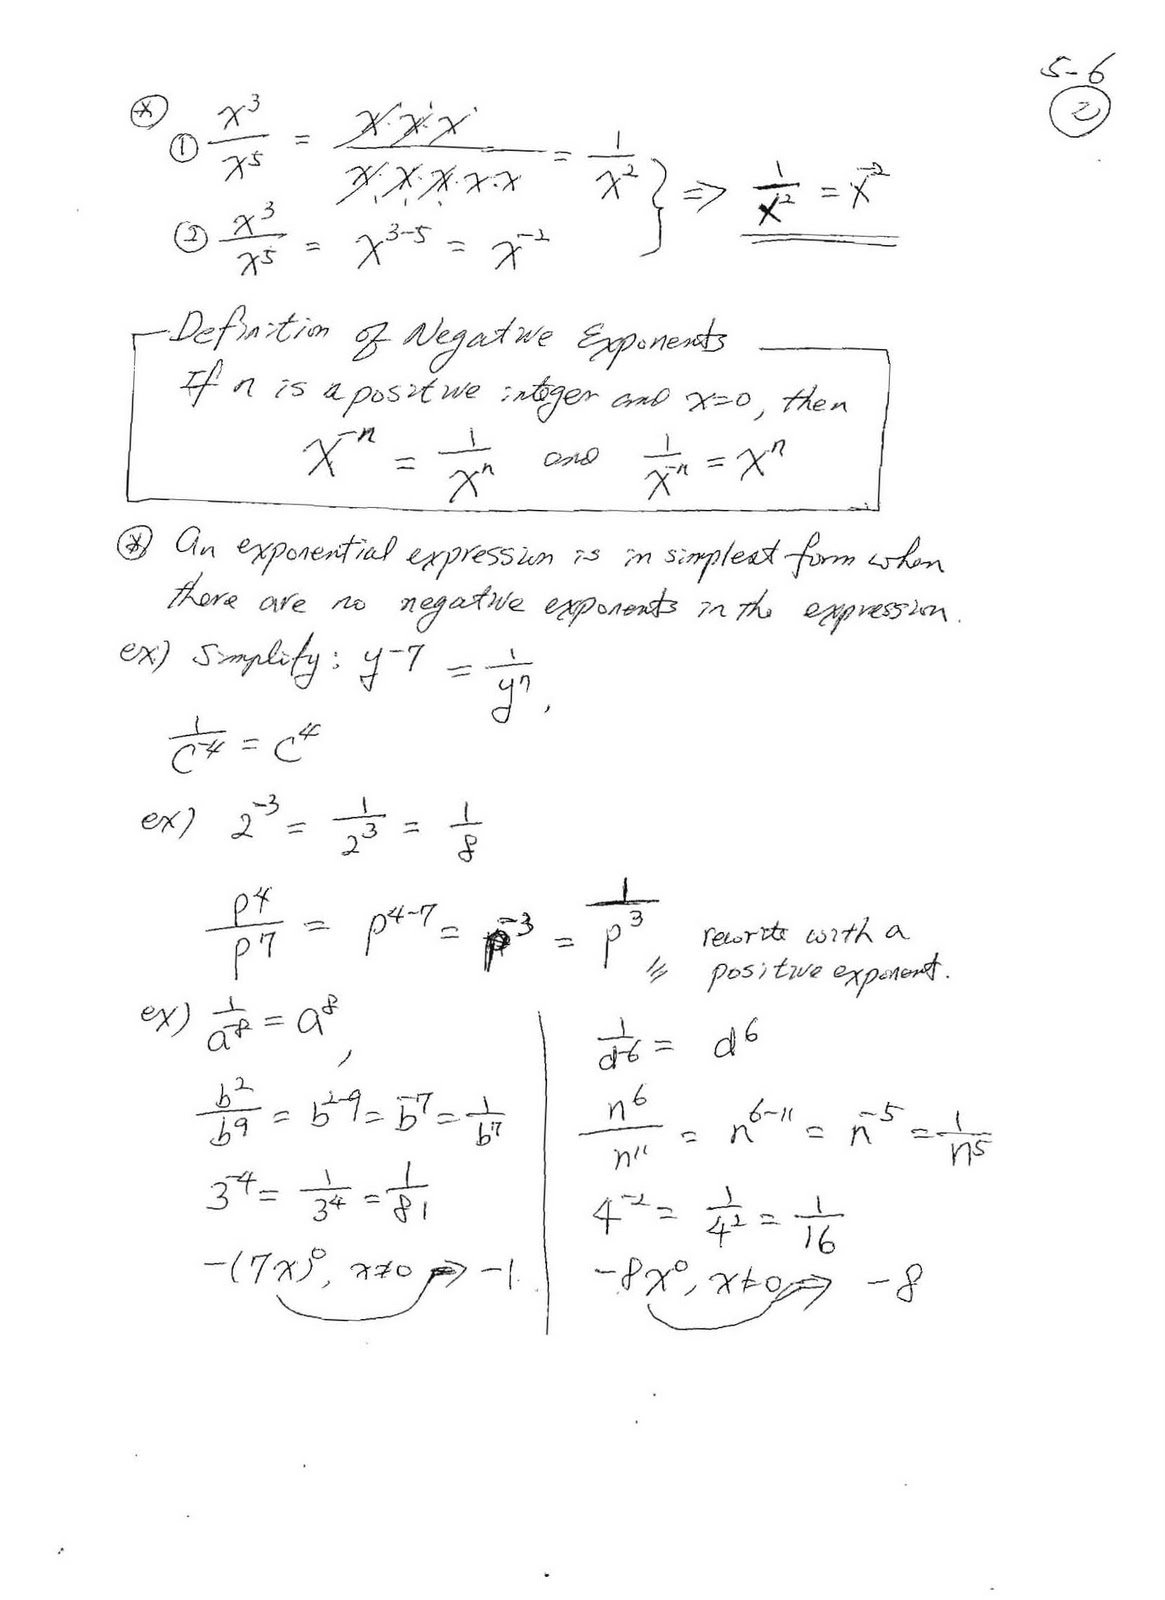 5-6
②
⊛
① x³/x⁵ = x·x·x/x·x·x·x·x = 1/x²
② x³/x⁵ = x³⁻⁵ = x⁻²
} ⇒ 1/x² = x⁻²
Definition of Negative Exponents
If n is a positive integer and x=0, then
x⁻ⁿ = 1/xⁿ and 1/x⁻ⁿ = xⁿ
⊛ An exponential expression is in simplest form when
there are no negative exponents in the expression.
ex) Simplify: y⁻⁷ = 1/y⁷,
1/c⁻⁴ = c⁴
ex) 2⁻³ = 1/2³ = 1/8
p⁴/p⁷ = p⁴⁻⁷ = p⁻³ = 1/p³ rewrite with a
positive exponent.
ex) 1/a⁻⁸ = a⁸,
b²/b⁹ = b²⁻⁹ = b⁻⁷ = 1/b⁷
3⁻⁴ = 1/3⁴ = 1/81
-(7x)⁰, x≠0 ⇒ -1.
1/d⁻⁶ = d⁶
n⁶/n¹¹ = n⁶⁻¹¹ = n⁻⁵ = 1/n⁵
4⁻² = 1/4² = 1/16
-8x⁰, x≠0 ⇒ -8